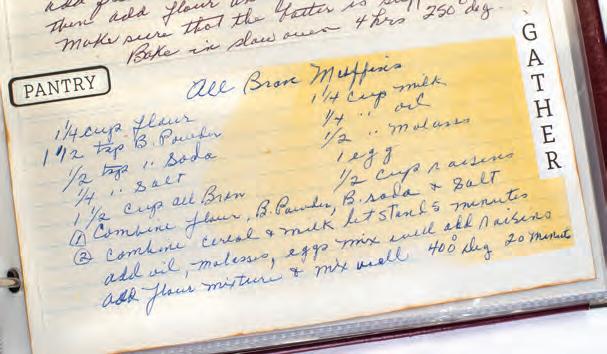 then add flour
make sure that the batter is
Bake in slow oven 4 hrs 250 deg.
PANTRY
GATHER
All Bran Muffins
1 1/4 cup flour
1 1/2 tsp B. Powder
1/2 tsp " Soda
1/4 " Salt
1 1/2 cup All Bran
1 1/4 cup milk
1/4 " oil
1/2 " molasses
1 egg
1/2 cup raisins
① Combine flour, B. Powder, B. soda & Salt
② combine cereal & milk let stand 5 minutes
add oil, molasses, eggs mix well add raisins
add flour mixture & mix well 400 deg 20 minutes